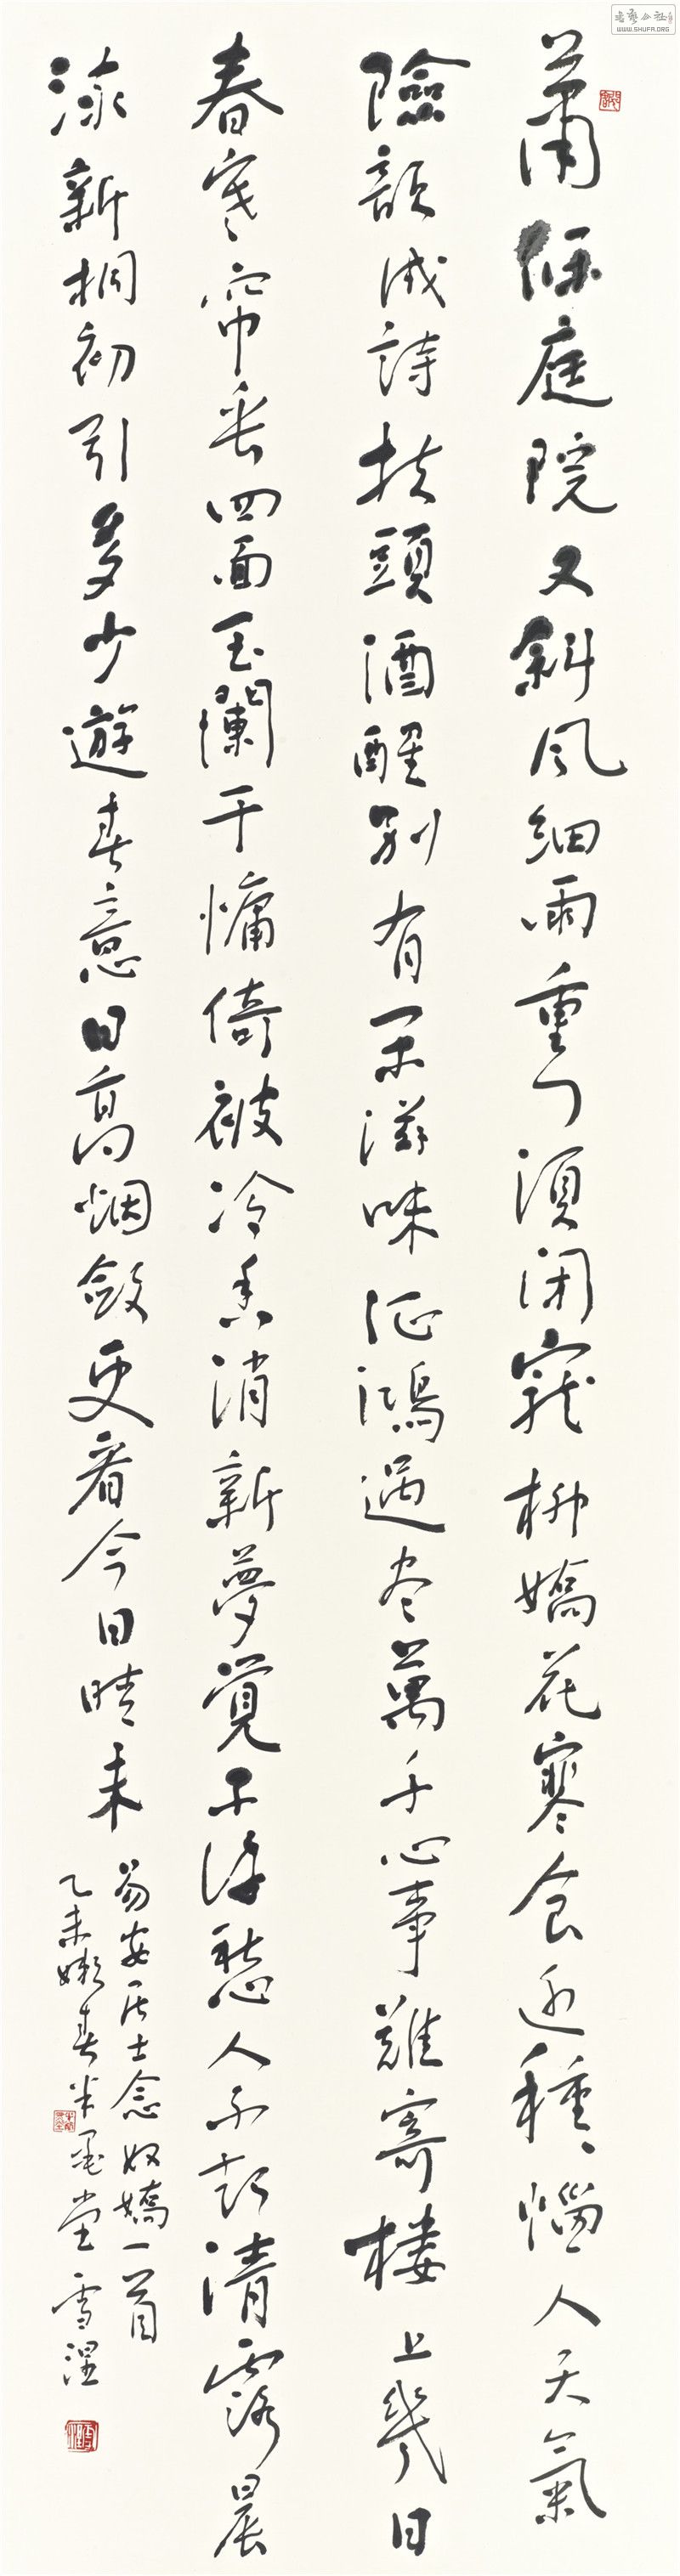 蕭條庭院又斜風細雨重門須閉寵柳嬌花寒食近種種惱人天氣
險韻成詩扶頭酒醒別有闲滋味征鴻過尽萬千心事難寄樓上幾日
春寒帘垂四面玉闌干慵倚被冷香消新夢覺不許愁人不起清露晨
流新桐初引多少遊春意日高烟斂更看今日晴未
易安居士念奴嬌一首
乙未嫩春半堂雪涅
書藝公社
WWW.SHUFA.ORG